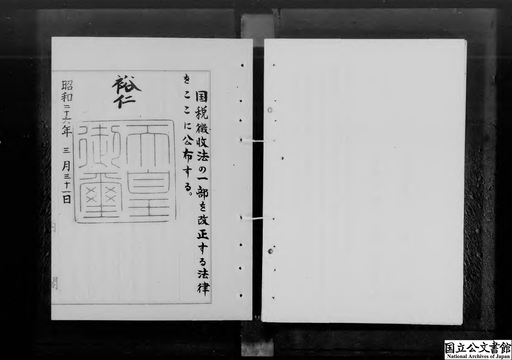 国税徴收法の一部を改正する法律
をここに公布する。
裕仁
天皇
御璽
昭和二十六年三月三十一日
国立公文書館
National Archives of Japan